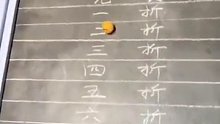 一 折
二 折
三 折
四 折
五 折
六 折